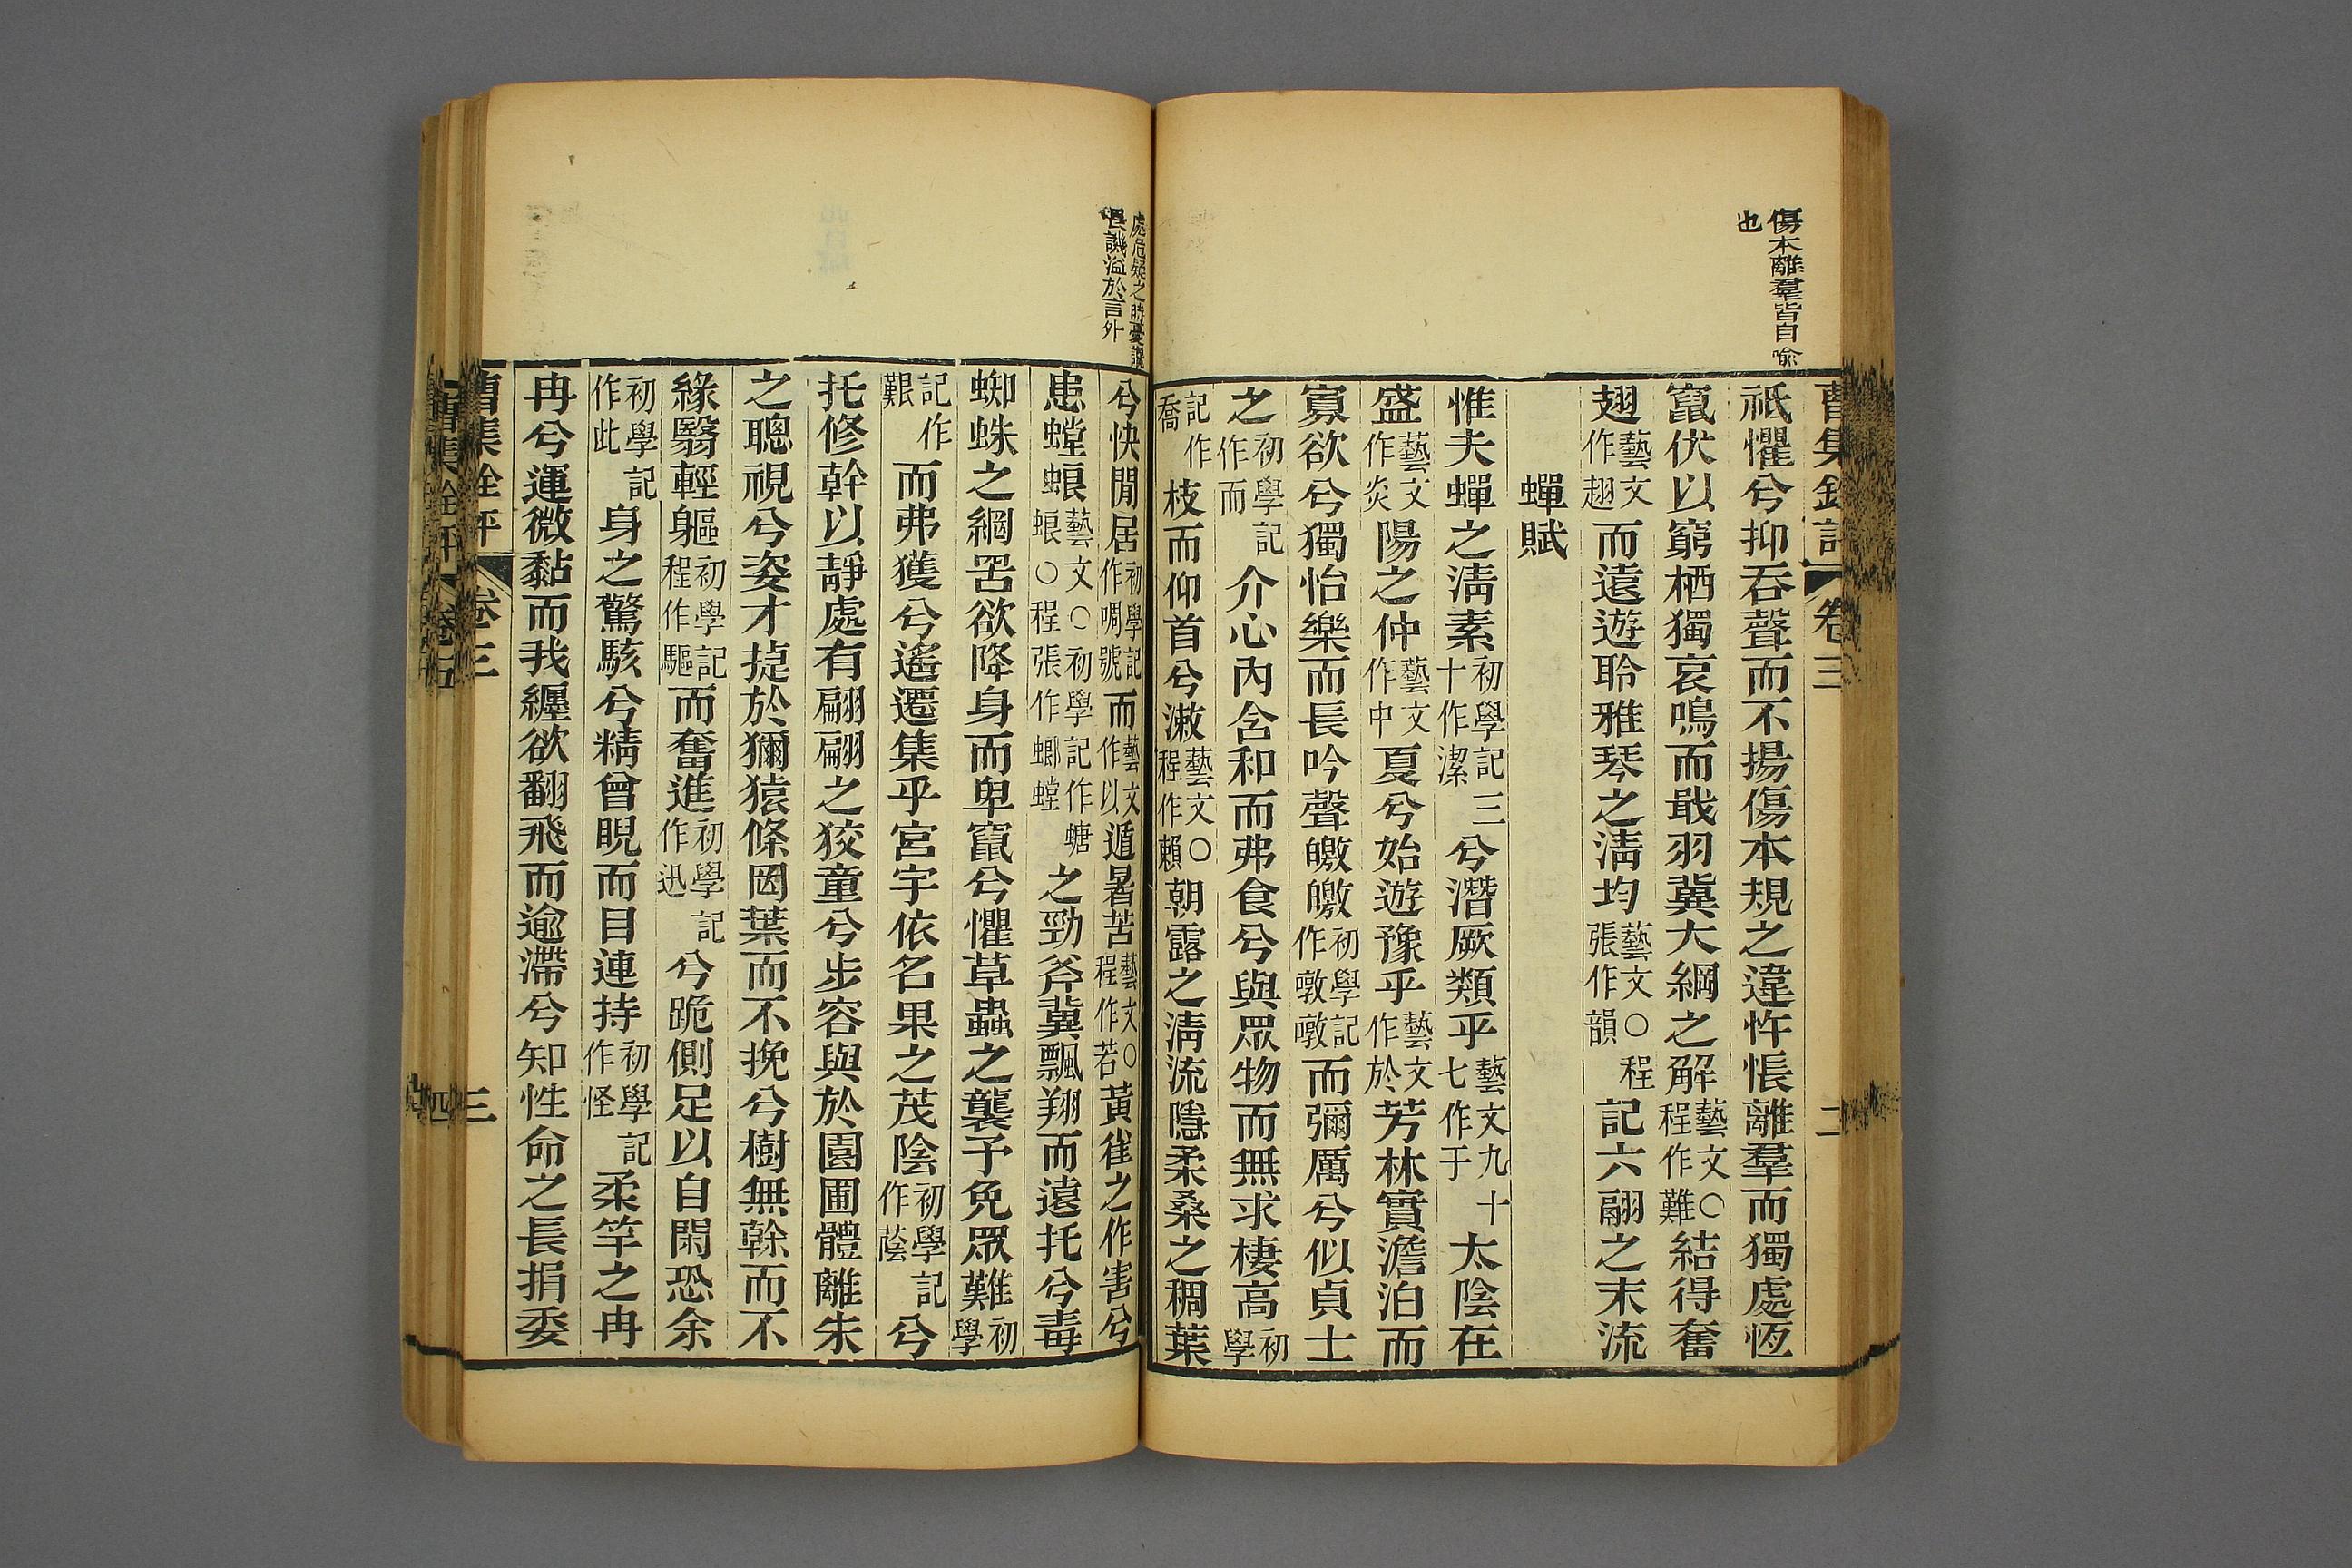 傷本離羣皆自喻
也
曹集銓評 卷三 二
祇懼兮抑吞聲而不揚傷本規之違忤悵離羣而獨處恆
竄伏以窮栖獨哀鳴而戢羽冀大綱之解藝文○程作難結得奮
翅藝文作翹而遠遊聆雅琴之清均藝文○程張作韻記六翮之末流
蟬賦
惟夫蟬之清素初學記三十作潔兮潛厥類乎藝文九十七作于太陰在
盛藝文作炎陽之仲藝文作中夏兮始遊豫乎藝文作於芳林實澹泊而
寡欲兮獨怡樂而長吟聲皦皦初學記作噭噭而彌厲兮似貞士
之初學記作而介心內含和而弗食兮與眾物而無求棲高初學
記作喬枝而仰首兮漱藝文○程作賴朝露之清流隱柔桑之稠葉
處危疑之時憂讒
畏譏溢於言外
兮快閒居初學記作啁號而藝文作以遁暑苦藝文○程作若黃雀之作害兮
患螳蜋藝文○初學記作螗蜋○程張作螂螳之勁斧冀飄翔而遠托兮毒
蜘蛛之網罟欲降身而卑竄兮懼草蟲之襲予免眾難初學
記作艱而弗獲兮遙遷集乎宮宇依名果之茂陰初學記作蔭兮
托修幹以靜處有翩翩之狡童兮步容與於園圃體離朱
之聰視兮姿才捷於獮猿條罔葉而不挽兮樹無榦而不
緣翳輕軀初學記程作驅而奮進初學記作迅兮跪側足以自閑恐余
初學記作此身之驚駭兮精曾睨而目連持初學記作怪柔竿之冉
冉兮運微黏而我纏欲翻飛而逾滯兮知性命之長捐委
曹集銓評 卷三 三